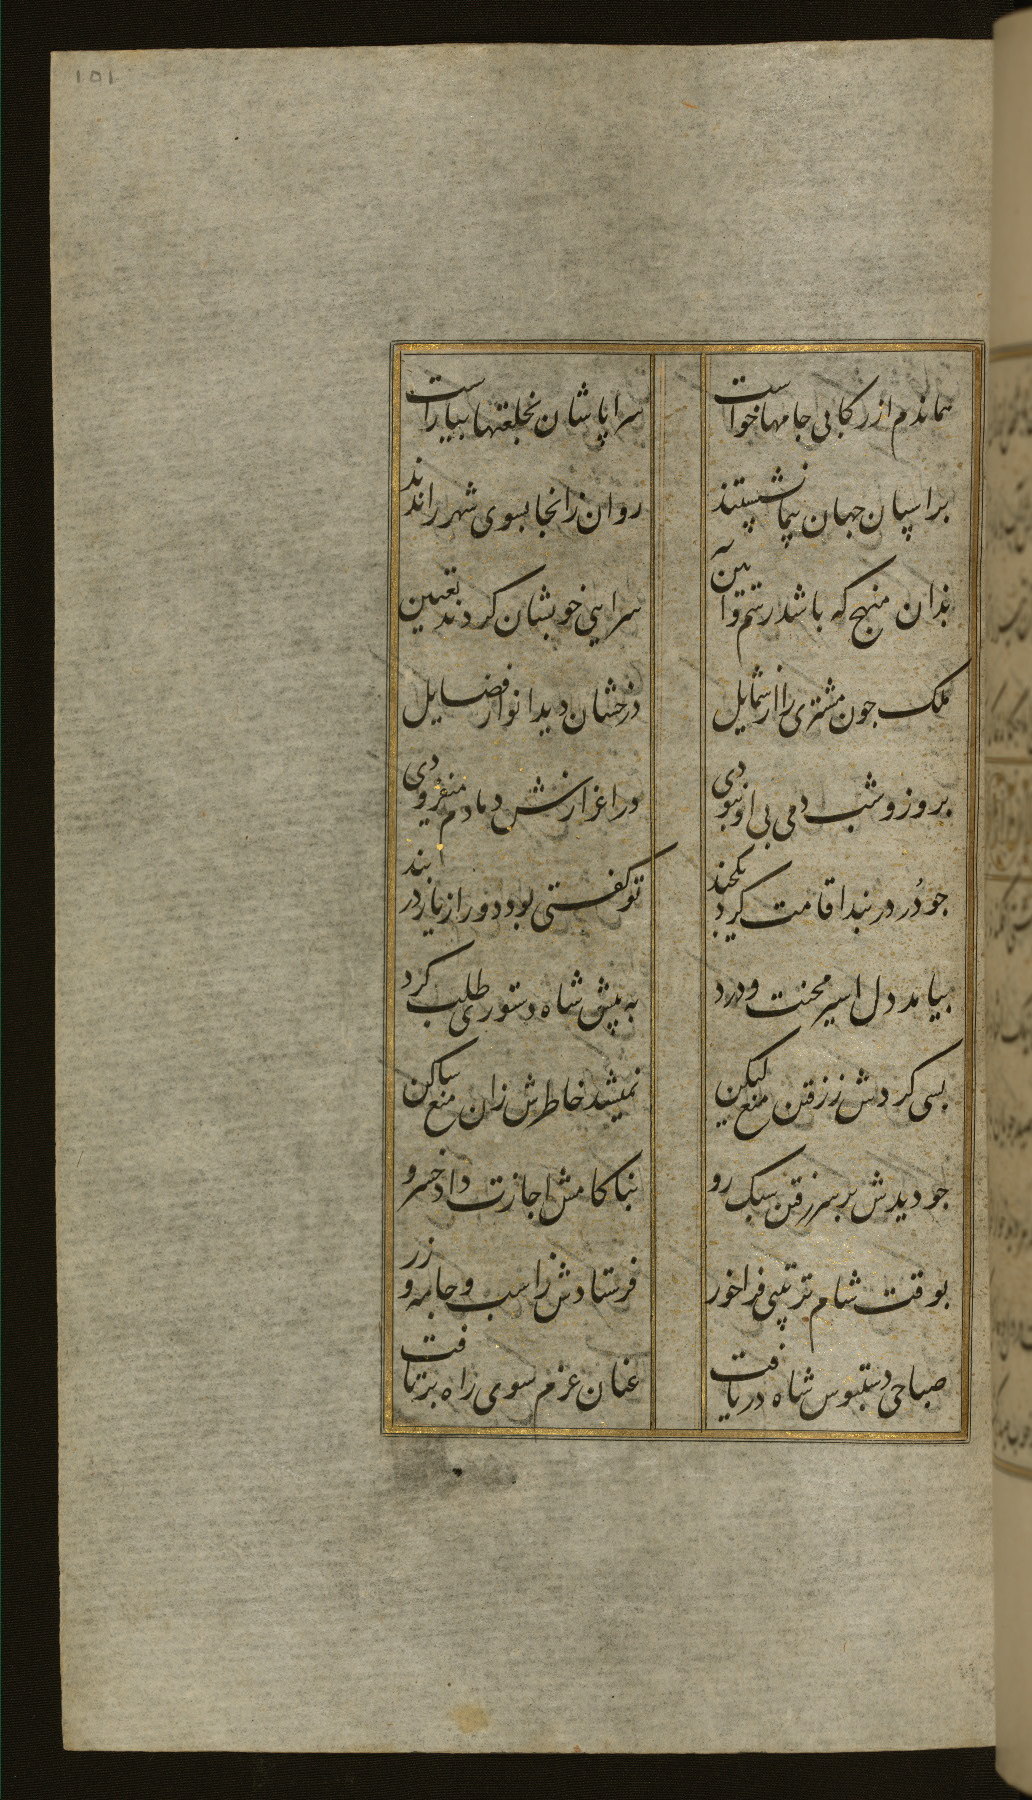 101
هماندم از رکابی جامها خواست
سراپاشان بخلعتها بیاراست
بر اسپان جهان پیما نشستند
روان زانجا بسوی شهر راندند
بدان منهج که باشد رسم و آیین
سرایی خوبشان کردند تعیین
ملک جون مشتری را از شمایل
درخشان دید انوار فضایل
بروز و شب دمی بی او نبودی
در اعزازش دمادم میفزودی
جو دُر در بند اقامت کرد یکجند
تو گفتی بود دور از یار در بند
بیامد دل اسیر محنت و درد
به پیش شاه دستوری طلب کرد
بسی کردش ز رفتن منع لیکن
نمیشد خاطرش زان منع ساکن
جو دیدش بر سر رفتن سبک رو
بناکامش اجازت داد خسرو
بوقت شام ترتیبی فراخور
فرستادش ز اسب و جامه و زر
صباحی دستبوس شاه دریافت
عنان عزم سوی راه برتافت